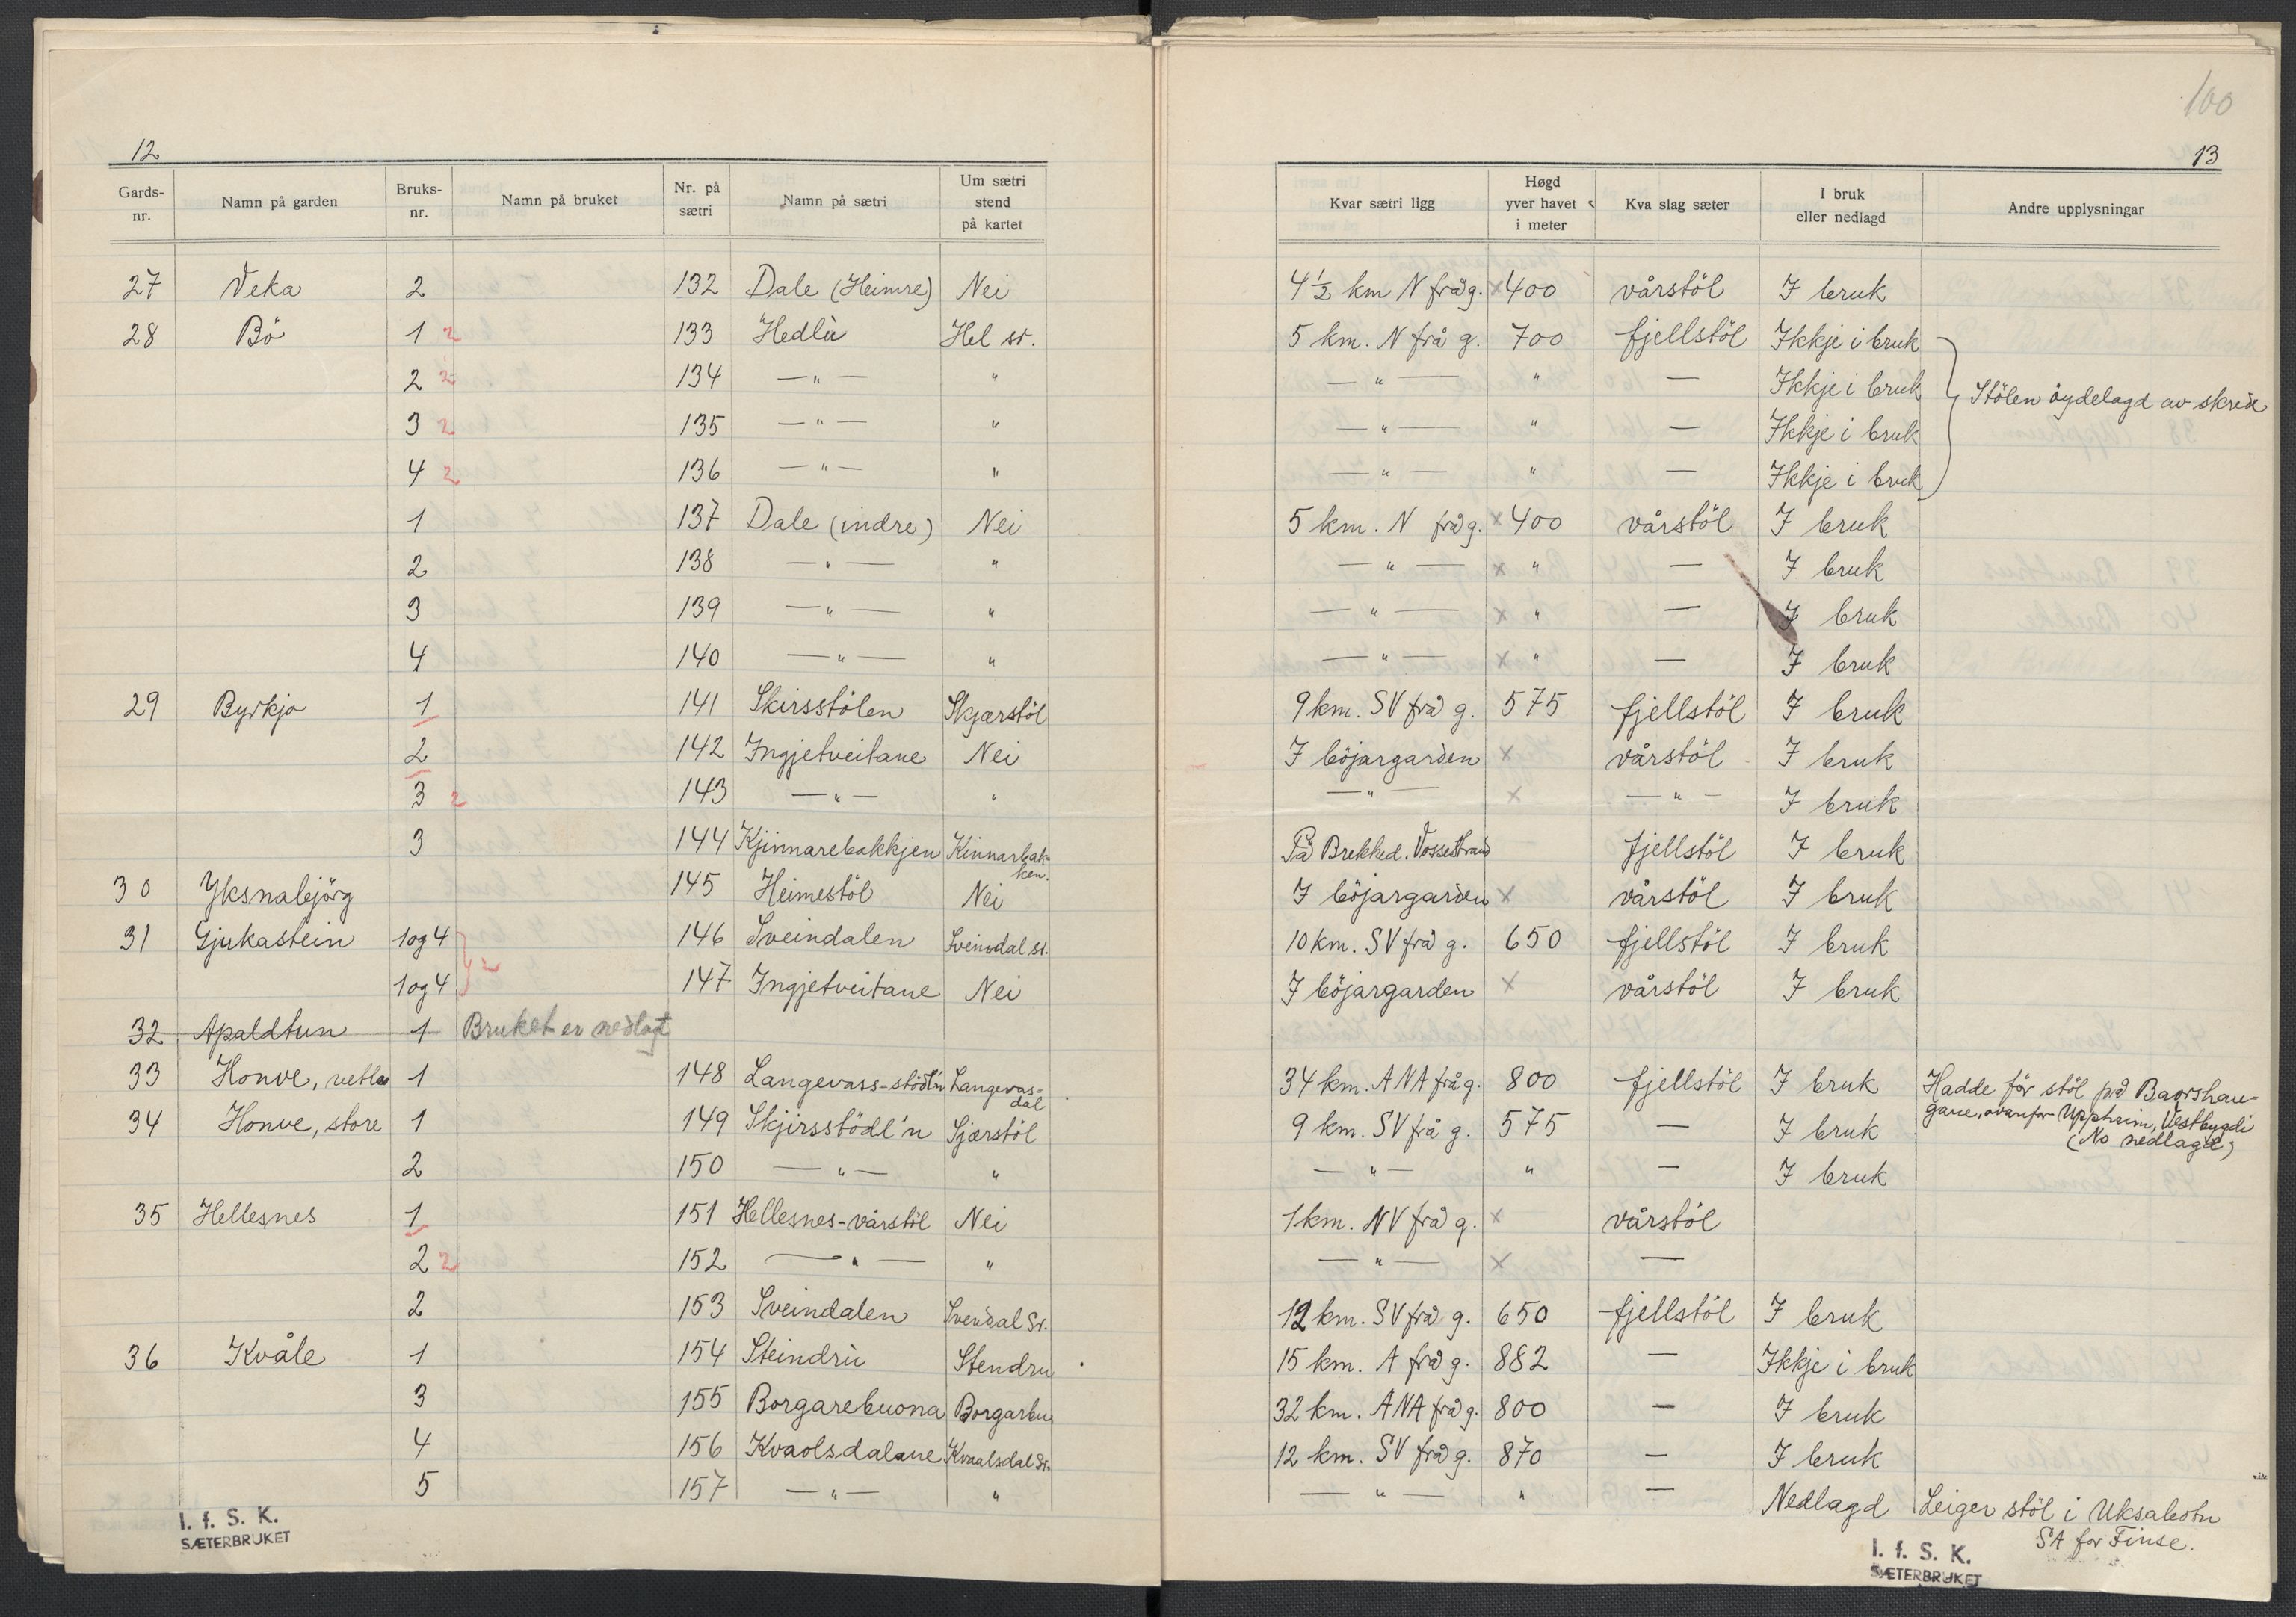 100
12
13
Gards-nr. Namn på garden Bruks-nr. Namn på bruket Nr. på sætri Namn på sætri Um sætri stend på kartet Kvar sætri ligg Høgd yver havet i meter Kva slag sæter I bruk eller nedlagd Andre upplysningar
27 Veka 2 132 Dale (Heimre) Nei 4½ km N frå g. x 400 vårstöl I bruk
28 Bö 1 2 133 Hedlù Hel st. 5 km. N frå g. 700 fjellstöl Ikkje i bruk
2 2 134 — " — " — " — " — Ikkje i bruk Stölen öydelagd av skrida
3 2 135 — " — " — " — " — Ikkje i bruk
4 2 136 — " — " — " — " — Ikkje i bruk
1 137 Dale (indre) Nei 5 km. N frå g. x 400 vårstöl I bruk
2 138 — " — " — " — x " — I bruk
3 139 — " — " — " — x " — I bruk
4 140 — " — " — " — x " — I bruk
29 Byrkjo 1 141 Skirsstölen Skjærstöl 9 km. SV frå g. 575 fjellstöl I bruk
2 142 Ingjetveitane Nei I böjargarden x vårstöl I bruk
3 2 143 — " — " — " — x — " — I bruk
3 144 Kjinnarebakkjen Kinnarbakken. På Brekked. Vossestrand fjellstöl I bruk
30 Yksnabjörg 145 Heimestöl Nei I böjargarden x vårstöl I bruk
31 Gjukastein 1 og 4 146 Sveindalen Sveindal st. 10 km. SV frå g. 650 fjellstöl I bruk
1 og 4 2 147 Ingjetveitane Nei I böjargarden x vårstöl I bruk
32 Apaldtun 1 Bruket er nedlagt
33 Honve, vetle 1 148 Langevass-stödl'n Langevas-dal 34 km. ANA frå g. 800 fjellstöl I bruk Hadde för stöl på Baorshau-
gane, ovanfor Uppheim, Vestbygdi
(No nedlagd)
34 Honve, store 1 149 Skjirsstödl'n Sjærstöl 9 km. SV frå g. 575 — I bruk
2 150 — " — " — " — " — I bruk
35 Hellesnes 1 151 Hellesnes-vårstöl Nei 1 km. NV frå g. x vårstöl
2 2 152 — " — " — " — x —
2 153 Sveindalen Svendal St. 12 km. SV frå g. 650 fjellstöl I bruk
36 Kvåle 1 154 Steindrù Stendru 15 km. A frå g. 882 — Ikkje i bruk
3 155 Borgarebuona Borgarbu 32 km. ANA frå g. 800 — I bruk
4 156 Kvaolsdalane Kvaalsdal St. 12 km. SV frå g. 870 — I bruk
5 157 — " — " — " — " — Nedlagd Leiger stöl i Uksabotn
SA for Finse.
I. f. S. K.
SÆTERBRUKET
I. f. S. K.
SÆTERBRUKET